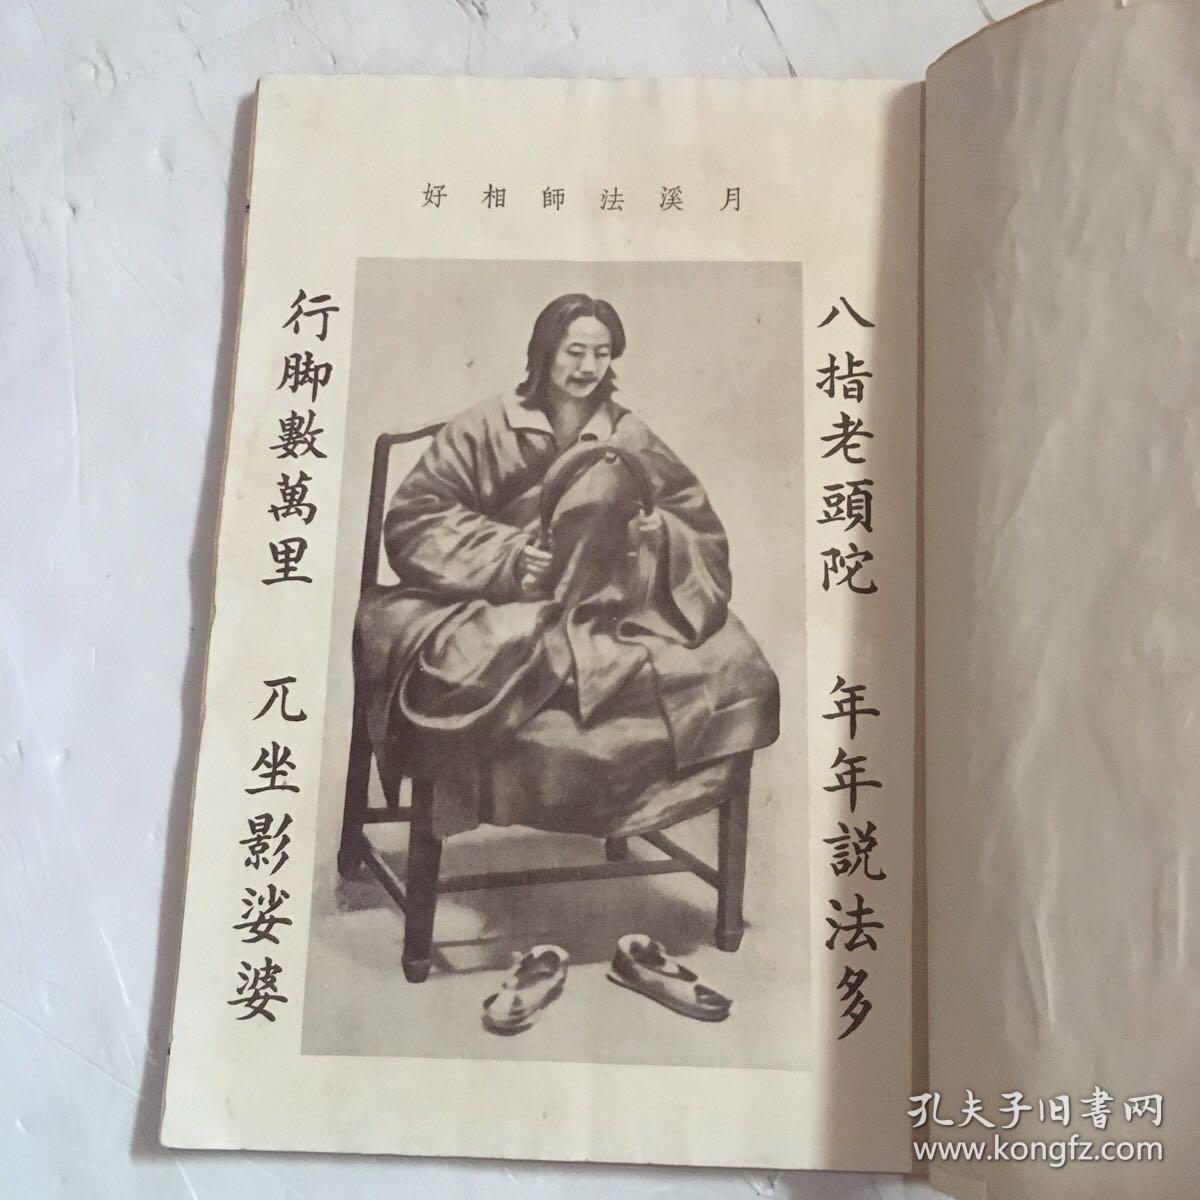 月溪法師相好
八指老頭陀 年年説法多
行脚數萬里 兀坐影娑婆
孔夫子旧書网
www.kongfz.com